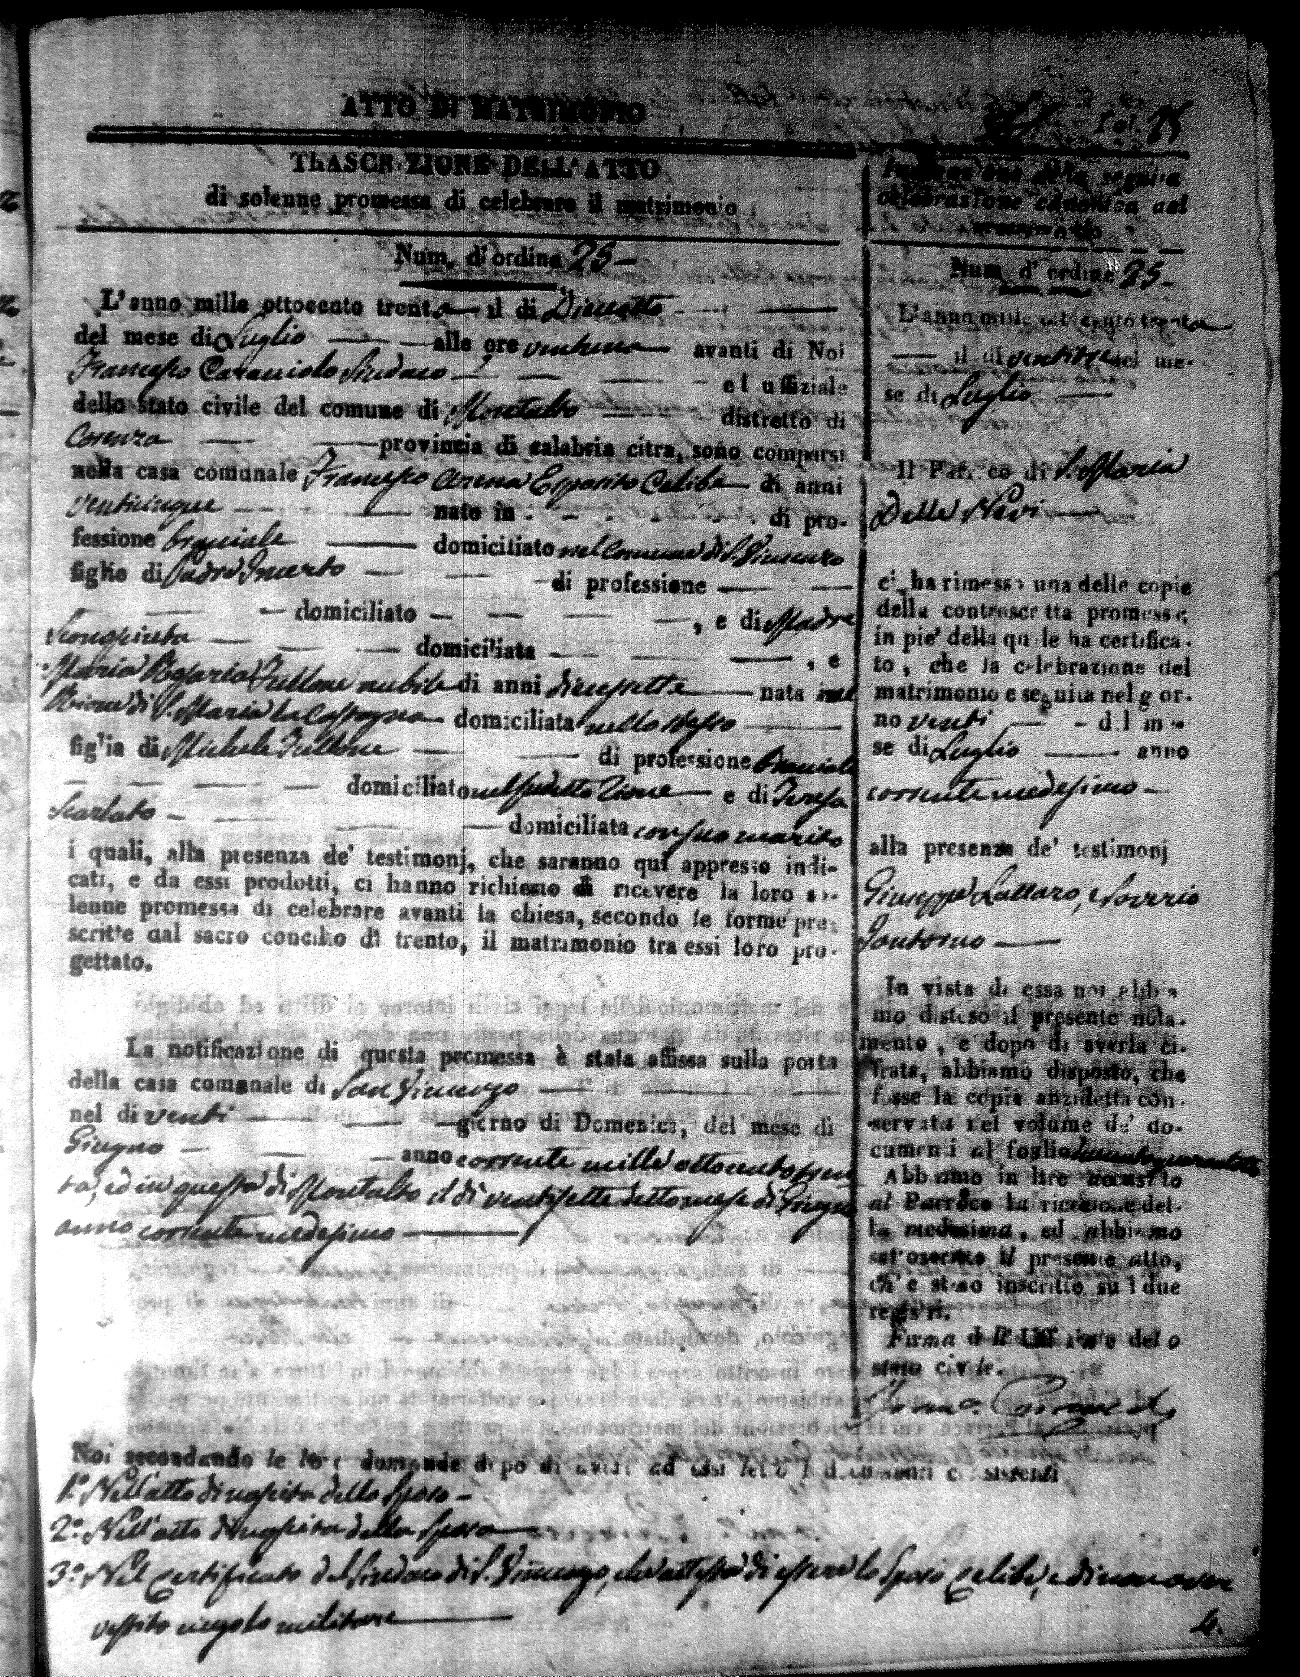 ATTO DI MATRIMONIO
TRASCRIZIONE DELL'ATTO
di solenne promessa di celebrare il matrimonio
Num. d'ordine 25
L'anno mille ottocento trenta il di Dieciotto
del mese di Luglio alle ore ventuna avanti di Noi
Francesco Caracciolo Sindaco ed uffiziale
dello stato civile del comune di Montalto distretto di
Cosenza provincia di calabria citra, sono comparsi
nella casa comunale Francesco Arena Esposito Celibe di anni
venticinque nato in di pro-
fessione bracciale domiciliato nel Comune di S. Vincenzo
figlio di Padre Incerto di professione
domiciliato , e di Madre
domiciliata , e
Maria Rosaria nubile di anni diecisette nata nel
Rione di S. Maria la domiciliata nello stesso
figlia di Michele di professione Bracciale
domiciliato nel sudetto Rione e di Teresa
Scarlato domiciliata con suo marito
i quali, alla presenza de' testimonj, che saranno qui appresso indi-
cati, e da essi prodotti, ci hanno richiesto di ricevere la loro so-
lenne promessa di celebrare avanti la chiesa, secondo le forme pre-
scritte dal sacro concilio di trento, il matrimonio tra essi loro pro-
gettato.
La notificazione di questa promessa è stata affissa sulla porta
della casa comunale di San Vincenzo
nel di venti giorno di Domenica, del mese di
Giugno anno corrente mille ottocento tren
ta, ed in questa di Montalto il di ventisette detto mese di Giugno
anno corrente medesimo
Noi secondando le loro domande dopo di aver ad essi letto i documenti consistenti
1.º Nell'atto di nascita dello Sposo
2.º Nell'atto di nascita della Sposa
3.º Nel Certificato del Sindaco di S. Vincenzo, che attesta di essere lo Sposo Celibe, e di non aver
vestito militare
4.
Fol. 25
Indicazione della seguita
celebrazione canonica del
matrimonio
Num. d'ordine 25
L'anno mille ottocento trenta
il di ventitre del me-
se di Luglio
Il Parroco di S. Maria
Delle Nevi
ci ha rimesso una delle copie
della controscritta promessa;
in piè della quale ha certifica-
to, che la celebrazione del
matrimonio è seguita nel gior-
no venti del me-
se di Luglio anno
corrente medesimo
alla presenza de' testimonj
Giuseppe Lattaro, e Saverio
Santoro
In vista di essa noi abbia-
mo disteso il presente nota-
mento, e dopo di averla ci-
frata, abbiamo disposto, che
fosse la copia anzidetta con-
servata nel volume de' do-
cumenti al foglio
Abbiamo in oltre accusato
al Parroco la ricezione del-
la medesima, ed abbiamo
sottoscritto il presente atto,
ch'è stato inscritto su i due
registri.
Firma dell'Uffiziale dello
stato civile.